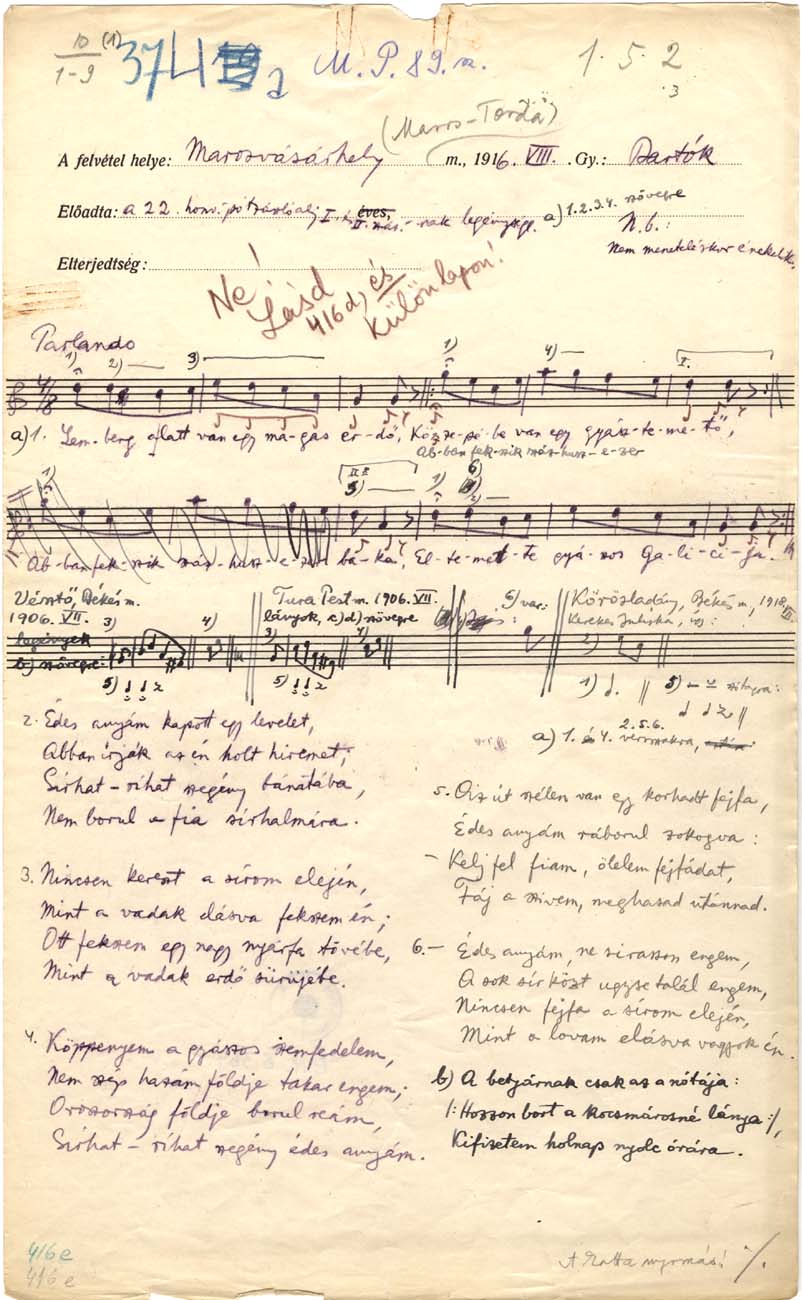 10 (1)
1-9
374
M. P. 89. sz.
1. 5. 2
3
(Maros-Torda)
A felvétel helye: Marosvásárhely m., 1916. VIII. Gy.: Bartók
Előadta: a 22. honv. pótzászlóalj I. és éves, a) 1. 2. 3. 4. szövegre
II. száz.-nak legénysége.
N. b.:
Nem meneteléskor énekelték.
Elterjedtség:
Ne! Lásd
416d, és
külön lapon!
Parlando
1) 2) 3) 1) 4) I.
4/8
a) 1. Lem-berg alatt van egy ma-gas er-dő, Köze-pé-be van egy gyász-te-me-tő,
Ab-ban fek-szik száz-husz-e-zer
1) II. 5) 1) 6) 2)
Ab-ban fek-szik száz-husz-e-zer ba-ka, El-te-met-te gyá-szos Ga-li-ci-ja.
Vésztő, Békés m.
1906. VII.
legények
b) szövegre:
3) 4)
5)
Tura Pest m. 1906. VII.
lányok, c) d) szövegre
3) 4)
5)
var:
Körösladány, Békés m., 1918.
Kerekes Juliska,
2)
1) 5)
2. 5. 6.
a) 1. és 4. versszakra,
2. Édes anyám kapott egy levelet,
Abban irják az én holt hiremet;
Sírhat-ríhat szegény bánatába,
Nem borul a fia sírhalmára.
3. Nincsen kereszt a sírom elején,
Mint a vadak elásva fekszem én;
Ott fekszem egy nagy nyárfa tövébe,
Mint a vadak erdő sürüjébe.
4. Köppenyem a gyászos szemfedelem,
Nem szép hazám földje takar engem;
Oroszország földje borul reám,
Sírhat-ríhat szegény édes anyám.
5. Az út szélen van egy korhadt fejfa,
Édes anyám ráborul zokogva:
- Kelj fel fiam, ölelem fejfádat,
Fáj a szivem, meghasad utánnad.
6. - Édes anyám, ne sirasson engem,
A sok sír közt ugyse talál engem,
Nincsen fejfa a sírom elején,
Mint a lovam elásva vagyok én.
b) A betyárnak csak az a nótája:
/: Hozzon bort a kocsmárosné lánya :/,
Kifizetem holnap nyolc órára.
416e
416e
A Rotta nyomás! ./.